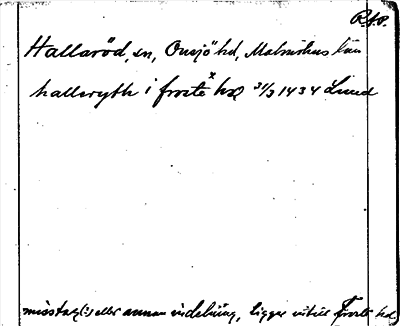 R.A.P.
Hallaröd, sn, Onsjö hd, Malmöhus län
hallaryth i froste hd 31/3 1434 Lund
misstag(?) eller annan indelning, ligger intill Frosta hd